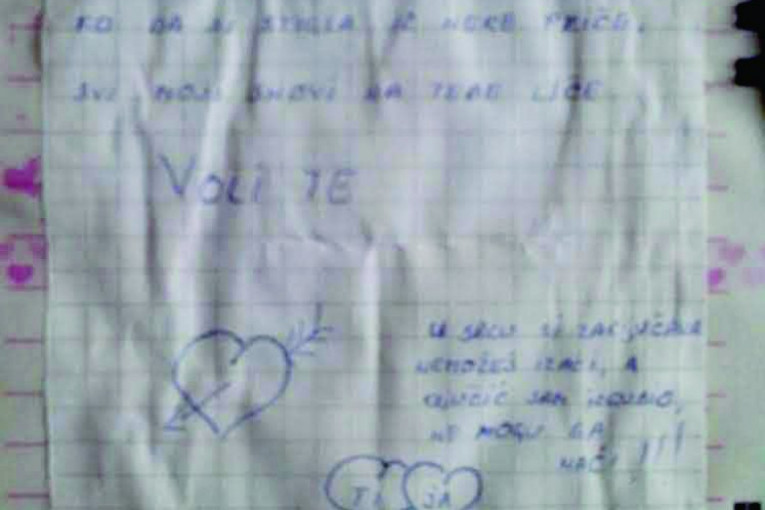 KO DA SI STIGLA IZ NEKE PRIČE,
SVI MOJI SNOVI NA TEBE LIČE
VOLI TE
U SRCU SI ZAKLJUČANA
NEMOŽEŠ IZAĆI, A
KLJUČIĆ SAM IZGUBIO,
NE MOGU GA
NAĆI !!!
TI JA